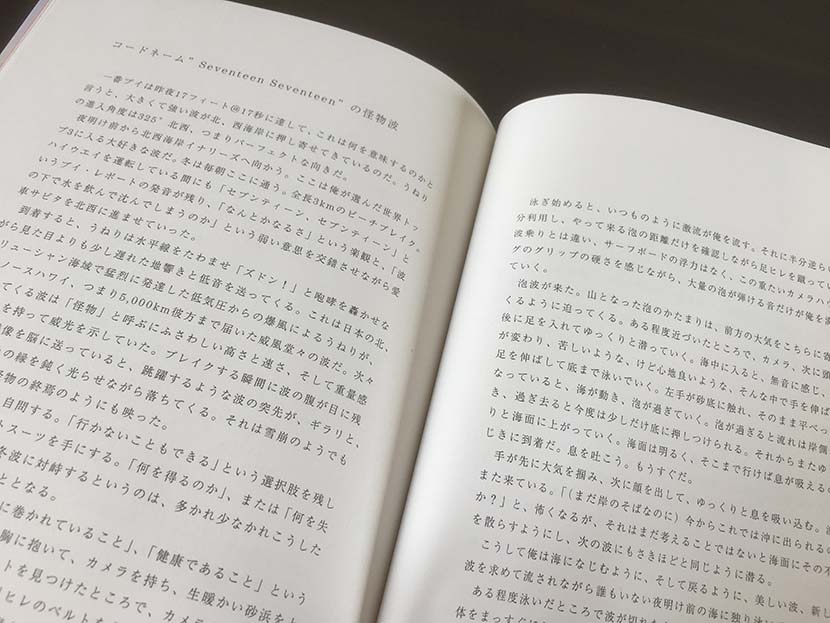 コードネーム" Seventeen Seventeen" の怪物波
一番ブイは昨夜17フィート@17秒に達して、これは何を意味するのかと
言うと、大きくて強い波が北、西海岸に押し寄せてきているのだ。うねり
の進入角度は325°北西、つまりパーフェクトな向きだ。
夜明け前から北西海岸イナリーズへ向かう。ここは俺が選んだ世界トッ
プ3に入る大好きな波だ。冬は毎朝ここに通う。全長3kmのビーチブレイク。
ハイウエイを運転している間にも「セブンティーン、セブンティーン」と
いうブイ・レポートの発音が残り、「なんとかなるさ」という楽観と、「波
の下で水を飲んで沈んでしまうのか」という弱い意思を交錯させながら愛
車サビタを北西に進ませていった。
到着すると、うねりは水平線をたわませ「ズドン！」と咆哮を轟かせな
がら見た目よりも少し遅れた地響きと低音を送ってくる。これは日本の北、
リューシャン海域で猛烈に発達した低気圧からの爆風によるうねりが、
ノースハワイ、つまり5,000km彼方まで届いた威風堂々の波だ。次々
てくる波は「怪物」と呼ぶにふさわしい高さと速さ、そして重量感
を持って威光を示していた。ブレイクする瞬間に波の腹が目に残
像を脳に送っていると、跳躍するような波の突先が、ギラリと、
の縁を鈍く光らせながら落ちてくる。それは雪崩のようでも
怪物の終焉のようにも映った。
自問する。「行かないこともできる」という選択肢を残し
トスーツを手にする。「何を得るのか」、または「何を失
冬波に対峙するというのは、多かれ少なかれこうした
ととなる。
に巻かれていること」、「健康であること」という
胸に抱いて、カメラを持ち、生暖かい砂浜を
トを見つけたところで、カメラ
ヒレのベルトを
泳ぎ始めると、いつものように激流が俺を流す。それに半分逆ら
分利用し、やって来る泡の距離だけを確認しながら足ヒレを蹴って
波乗りとは違い、サーフボードの浮力はなく、この重たいカメラハ
グのグリップの硬さを感じながら、大量の泡が弾ける音だけが俺を
ていく。
泡波が来た。山となった泡のかたまりは、前方の大気をこちらに寄
くるように迫ってくる。ある程度近づいたところで、カメラ、次に頭
後に足を入れてゆっくりと潜っていく。海中に入ると、無音に感じ、
が変わり、苦しいような、けど心地良いような、そんな中で手を伸ば
足を伸ばして底まで泳いでいく。左手が砂底に触れ、そのまま平べっ
なっていると、海が動き、泡が過ぎていく。泡が過ぎると流れは岸側
き、過ぎ去ると今度は少しだけ底に押しつけられる。それからまたゆ
りと海面に上がっていく。海面は明るく、そこまで行けば息が吸える
じきに到着だ。息を吐こう。もうすぐだ。
手が先に大気を掴み、次に顔を出して、ゆっくりと息を吸い込む。
また来ている。「(まだ岸のそばなのに) 今からこれでは沖に出られるの
か？」と、怖くなるが、それはまだ考えることではないと海面にその不
を散らすようにし、次の波にもさきほどと同じように潜る。
こうして俺は海になじむように、そして戻るように、美しい波、新し
波を求めて流されながら誰もいない夜明け前の海に独り泳い
ある程度泳いだところで波が切れた
体をまっすぐに